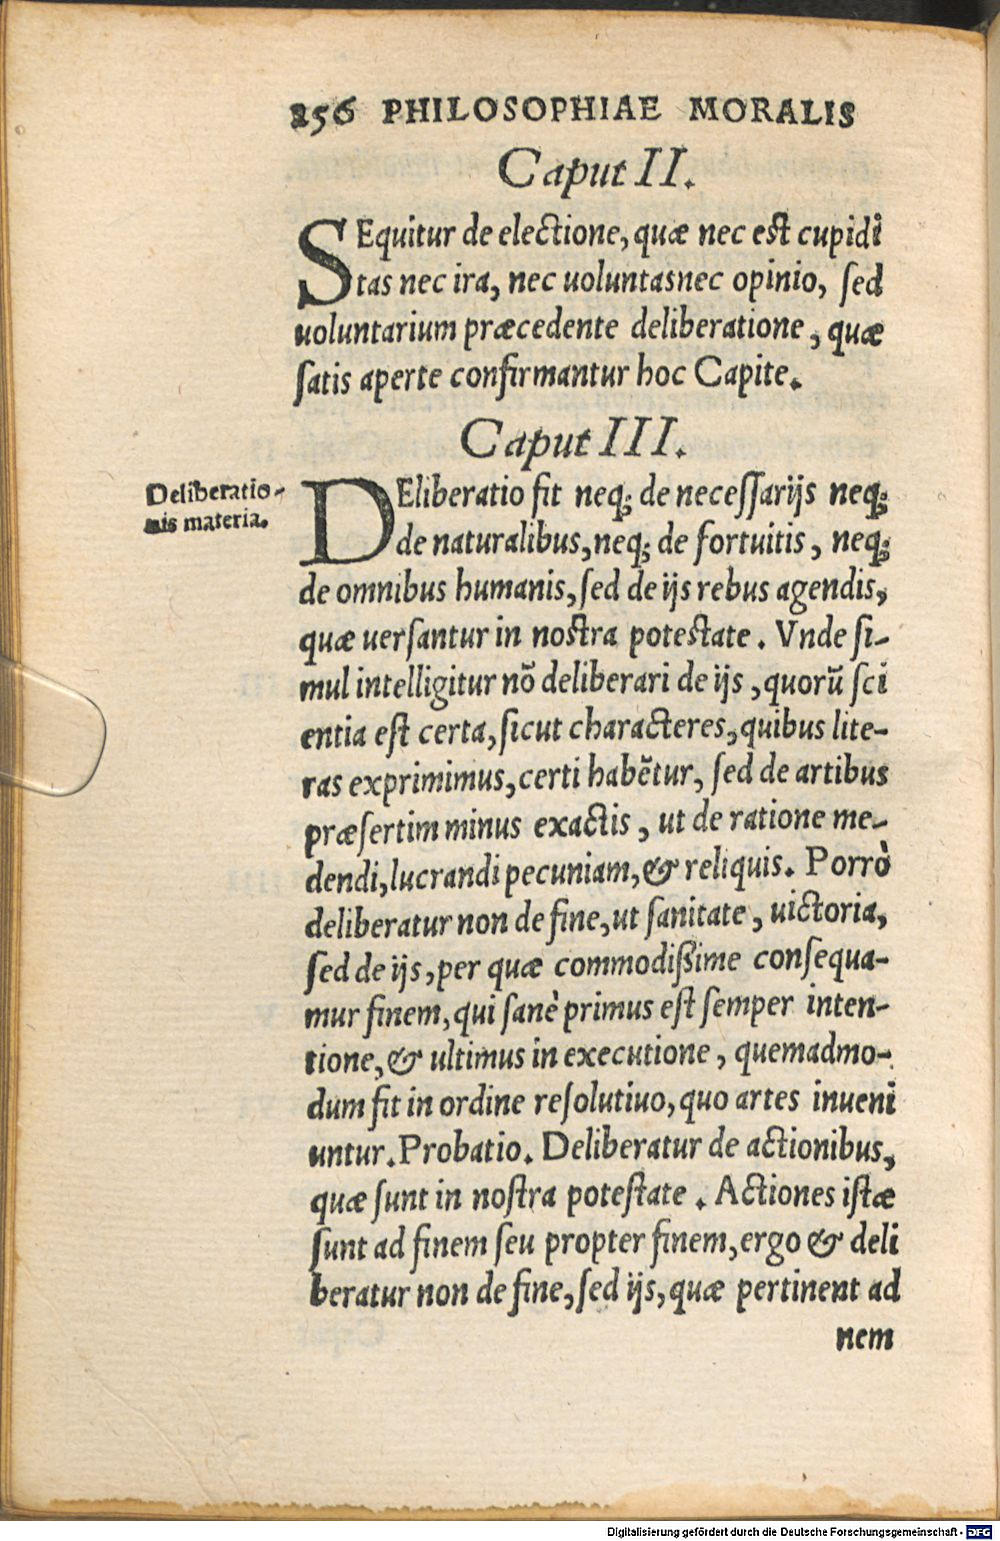 256 PHILOSOPHIAE MORALIS
Caput II.
SEquitur de electione, quæ nec est cupidi
tas nec ira, nec uoluntasnec opinio, sed
uoluntarium præcedente deliberatione, quæ
satis aperte confirmantur hoc Capite.
Caput III.
Deliberatio-
nis materia.
DEliberatio fit neq; de necessarijs neq;
de naturalibus, neq; de fortuitis, neq;
de omnibus humanis, sed de ijs rebus agendis,
quæ uersantur in nostra potestate. Vnde si-
mul intelligitur nõ deliberari de ijs, quorũ sci
entia est certa, sicut characteres, quibus lite-
ras exprimimus, certi habẽtur, sed de artibus
præsertim minus exactis, ut de ratione me-
dendi, lucrandi pecuniam, & reliquis. Porrò
deliberatur non de fine, ut sanitate, uictoria,
sed de ijs, per quæ commodißime consequa-
mur finem, qui sanè primus est semper inten-
tione, & ultimus in executione, quemadmo-
dum fit in ordine resolutiuo, quo artes inueni
untur. Probatio. Deliberatur de actionibus,
quæ sunt in nostra potestate. Actiones istæ
sunt ad finem seu propter finem, ergo & deli
beratur non de fine, sed ijs, quæ pertinent ad
nem
Digitalisierung gefördert durch die Deutsche Forschungsgemeinschaft - DFG